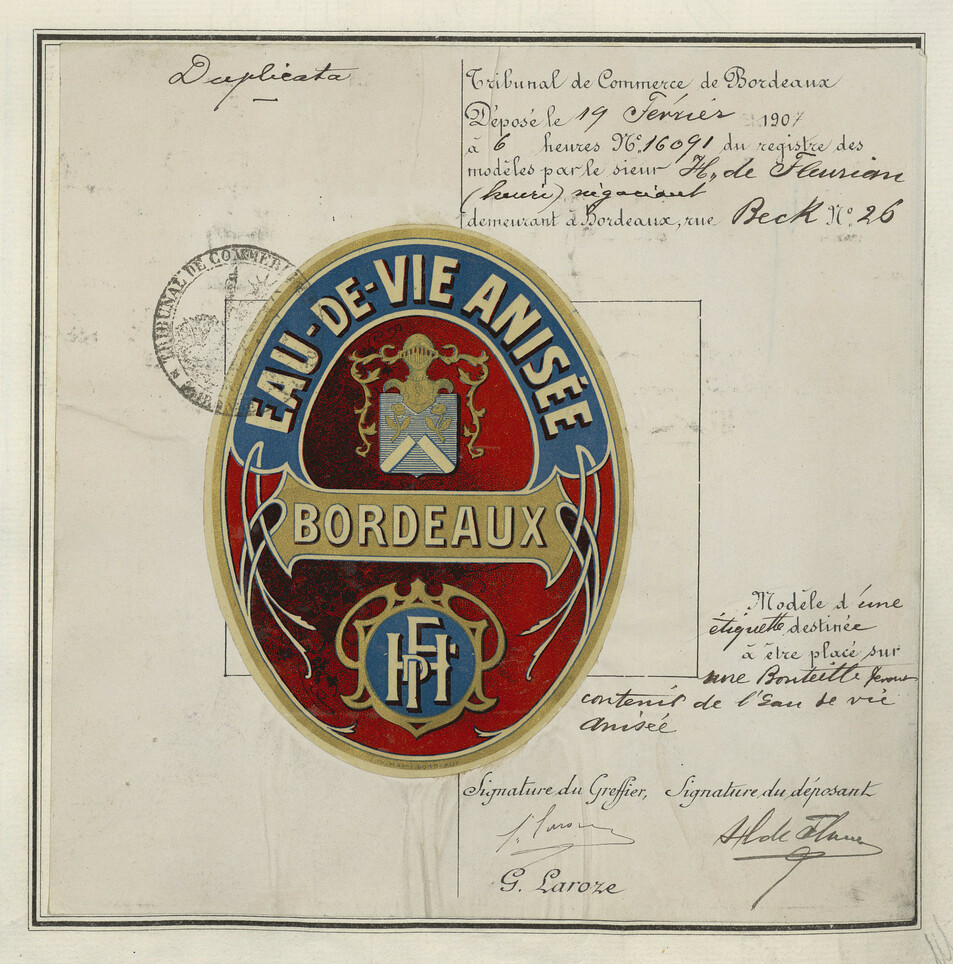 Duplicata
Tribunal de Commerce de Bordeaux
Déposé le 19 Février 1907
à 6 heures N° 16091 du registre des
modèles par le sieur H. de Fleurian
(henri) négociant
demeurant à Bordeaux, rue Beck N° 26
TRIBUNAL DE COMMERCE
EAU-DE-VIE ANISÉE
BORDEAUX
HFPH
Modèle d'une
étiquette destinée
à être placé sur
une Bouteille devant
contenir de l'Eau de vie
Anisée
Signature du Greffier, Signature du déposant
G. Laroze